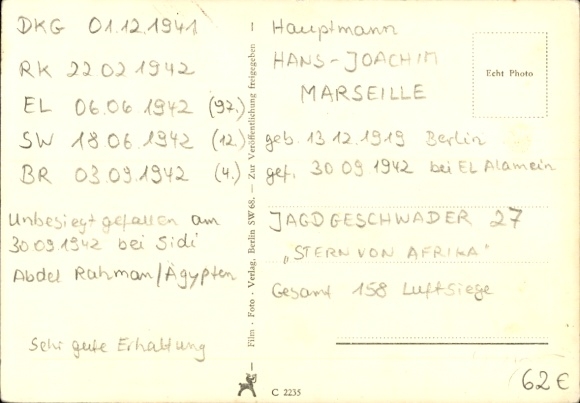 DKG 01.12.1941
RK 22.02 1942
EL 06.06 1942 (97.)
SW 18.06 1942 (12.)
BR 03.09.1942 (4.)
Unbesiegt gefallen am
30 09 1942 bei Sidi
Abdel Rahman/Ägypten
Sehr gute Erhaltung
Film - Foto - Verlag, Berlin SW 68. — Zur Veröffentlichung freigegeben
Hauptmann
HANS-JOACHIM
MARSEILLE
Echt Photo
geb. 13 12.1919 Berlin
gef. 30 09 1942 bei EL Alamein
JAGDGESCHWADER 27
„STERN VON AFRIKA"
Gesamt 158 Luftsiege
C 2235
62€